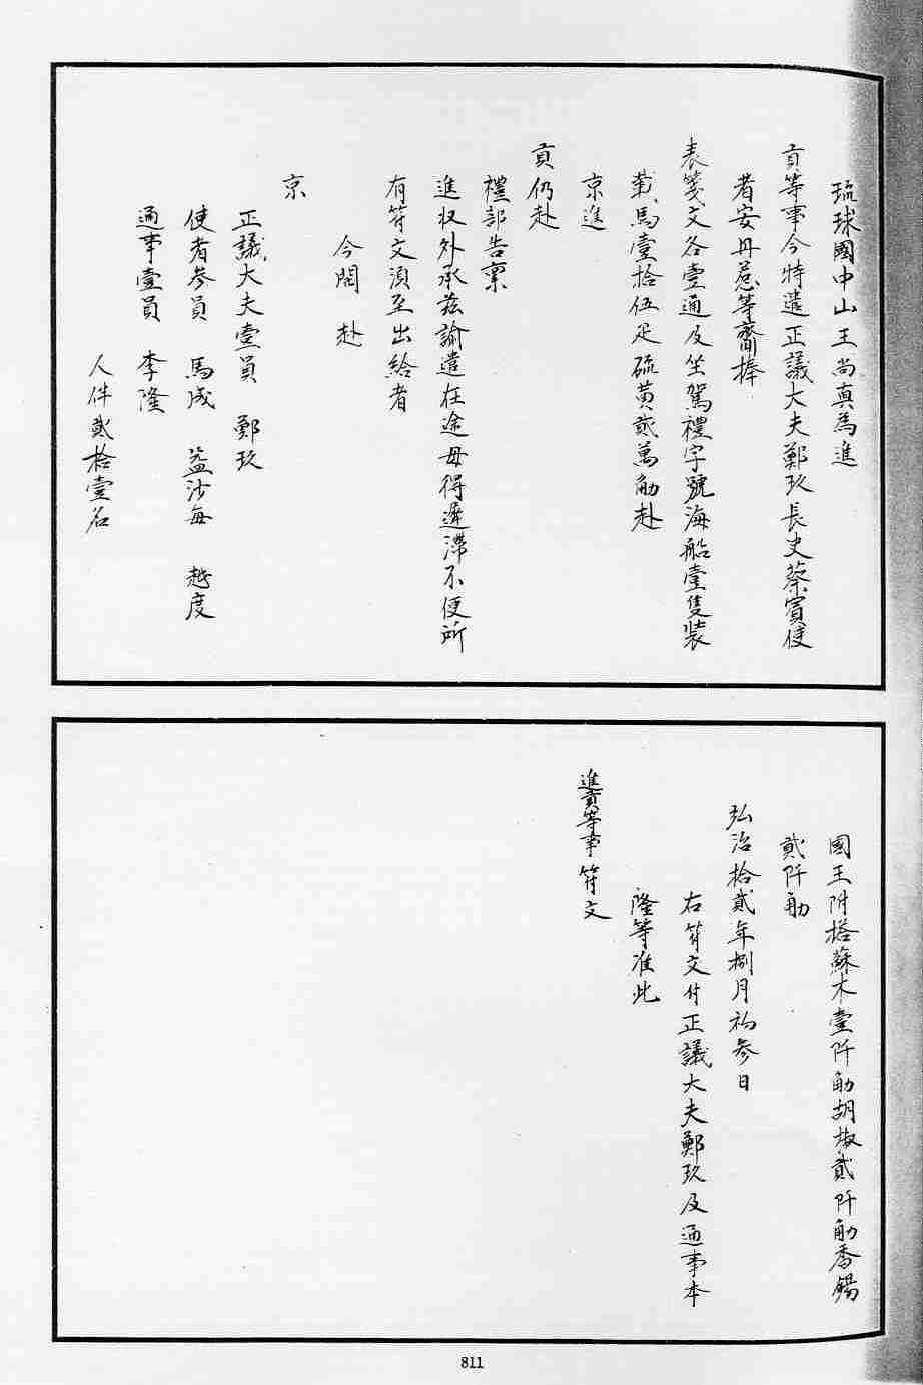 琉球國中山王尚真為進
貢等事今特遣正議大夫鄭玖長史蔡賓使
者安丹惹等齎捧
表箋文各壹通及坐駕禮字號海船壹隻裝
載馬壹拾伍疋硫黃貳萬觔赴
京進
貢仍赴
禮部告稟
進收外承茲諭遣在途毋得遲滯不便所
有符文須至出給者
今開赴
京
正議大夫壹員 鄭玖
使者參員 馬成 益沙每 越度
通事壹員 李隆
人伴貳拾壹名
國王附搭蘇木壹阡觔胡椒貳阡觔番錫
貳阡觔
弘治拾貳年捌月初參日
右符文付正議大夫鄭玖及通事李
隆等准此
進貢等事 符文
811